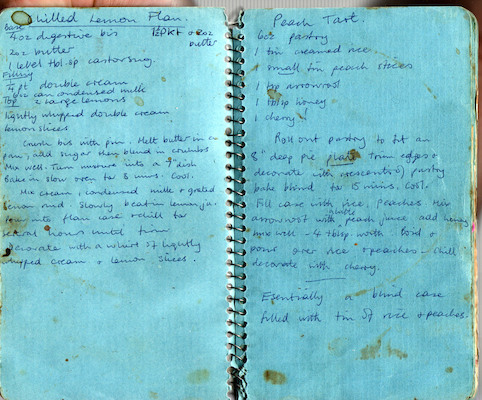 Chilled Lemon Flan.
Base
4oz digestive bis
2oz butter
1 level tbl.sp castor sug.
Filling
1/4 pt double cream
6oz can condensed milk
2 large lemons
Top
lightly whipped double cream
lemon slices
Crush bis with pin. Melt butter in a
pan, add sugar then blend in crumbs
Mix well. Turn mixture into a 7" dish
Bake in slow oven for 8 mins. Cool.
Mix cream, condensed milk & grated
lemon rind. Slowly beat in lemon ju.
Pour into flan case & chill for
several hours until firm
Decorate with a whirl of lightly
whipped cream & lemon slices.
Peach Tart.
6oz pastry
1 tin creamed rice
1 small tin peach slices
1 tsp arrowroot
1 tblsp honey
1 cherry
Roll out pastry to fit an
8" deep pie plate trim edges &
decorate with crescents of pastry
bake blind for 15 mins. Cool.
Fill case with rice, peaches mix
arrowroot with peach juice add honey
mix well - 4 tblsp worth. Boil &
pour over rice & peaches - chill
decorate with cherry.
Esentially a blind case
filled with tin of rice & peaches.